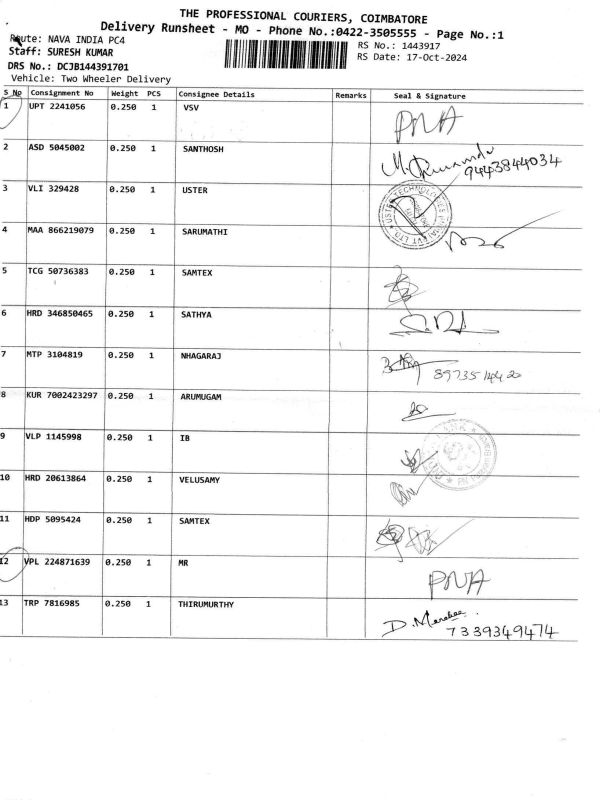 THE PROFESSIONAL COURIERS, COIMBATORE
Delivery Runsheet - MO - Phone No.:0422-3505555 - Page No.:1
Route: NAVA INDIA PC4
RS No.: 1443917
Staff: SURESH KUMAR
RS Date: 17-Oct-2024
DRS No.: DCJB144391701
Vehicle: Two Wheeler Delivery
S No Consignment No Weight PCS Consignee Details Remarks Seal & Signature
1 UPT 2241056 0.250 1 VSV PNA
2 ASD 5045002 0.250 1 SANTHOSH 9443844034
3 VLI 329428 0.250 1 USTER
4 MAA 866219079 0.250 1 SARUMATHI
5 TCG 50736383 0.250 1 SAMTEX
6 HRD 346850465 0.250 1 SATHYA
7 MTP 3104819 0.250 1 NHAGARAJ
8 KUR 7002423297 0.250 1 ARUMUGAM
9 VLP 1145998 0.250 1 IB
10 HRD 20613864 0.250 1 VELUSAMY
11 HDP 5095424 0.250 1 SAMTEX
12 VPL 224871639 0.250 1 MR PNA
13 TRP 7816985 0.250 1 THIRUMURTHY 7339349474